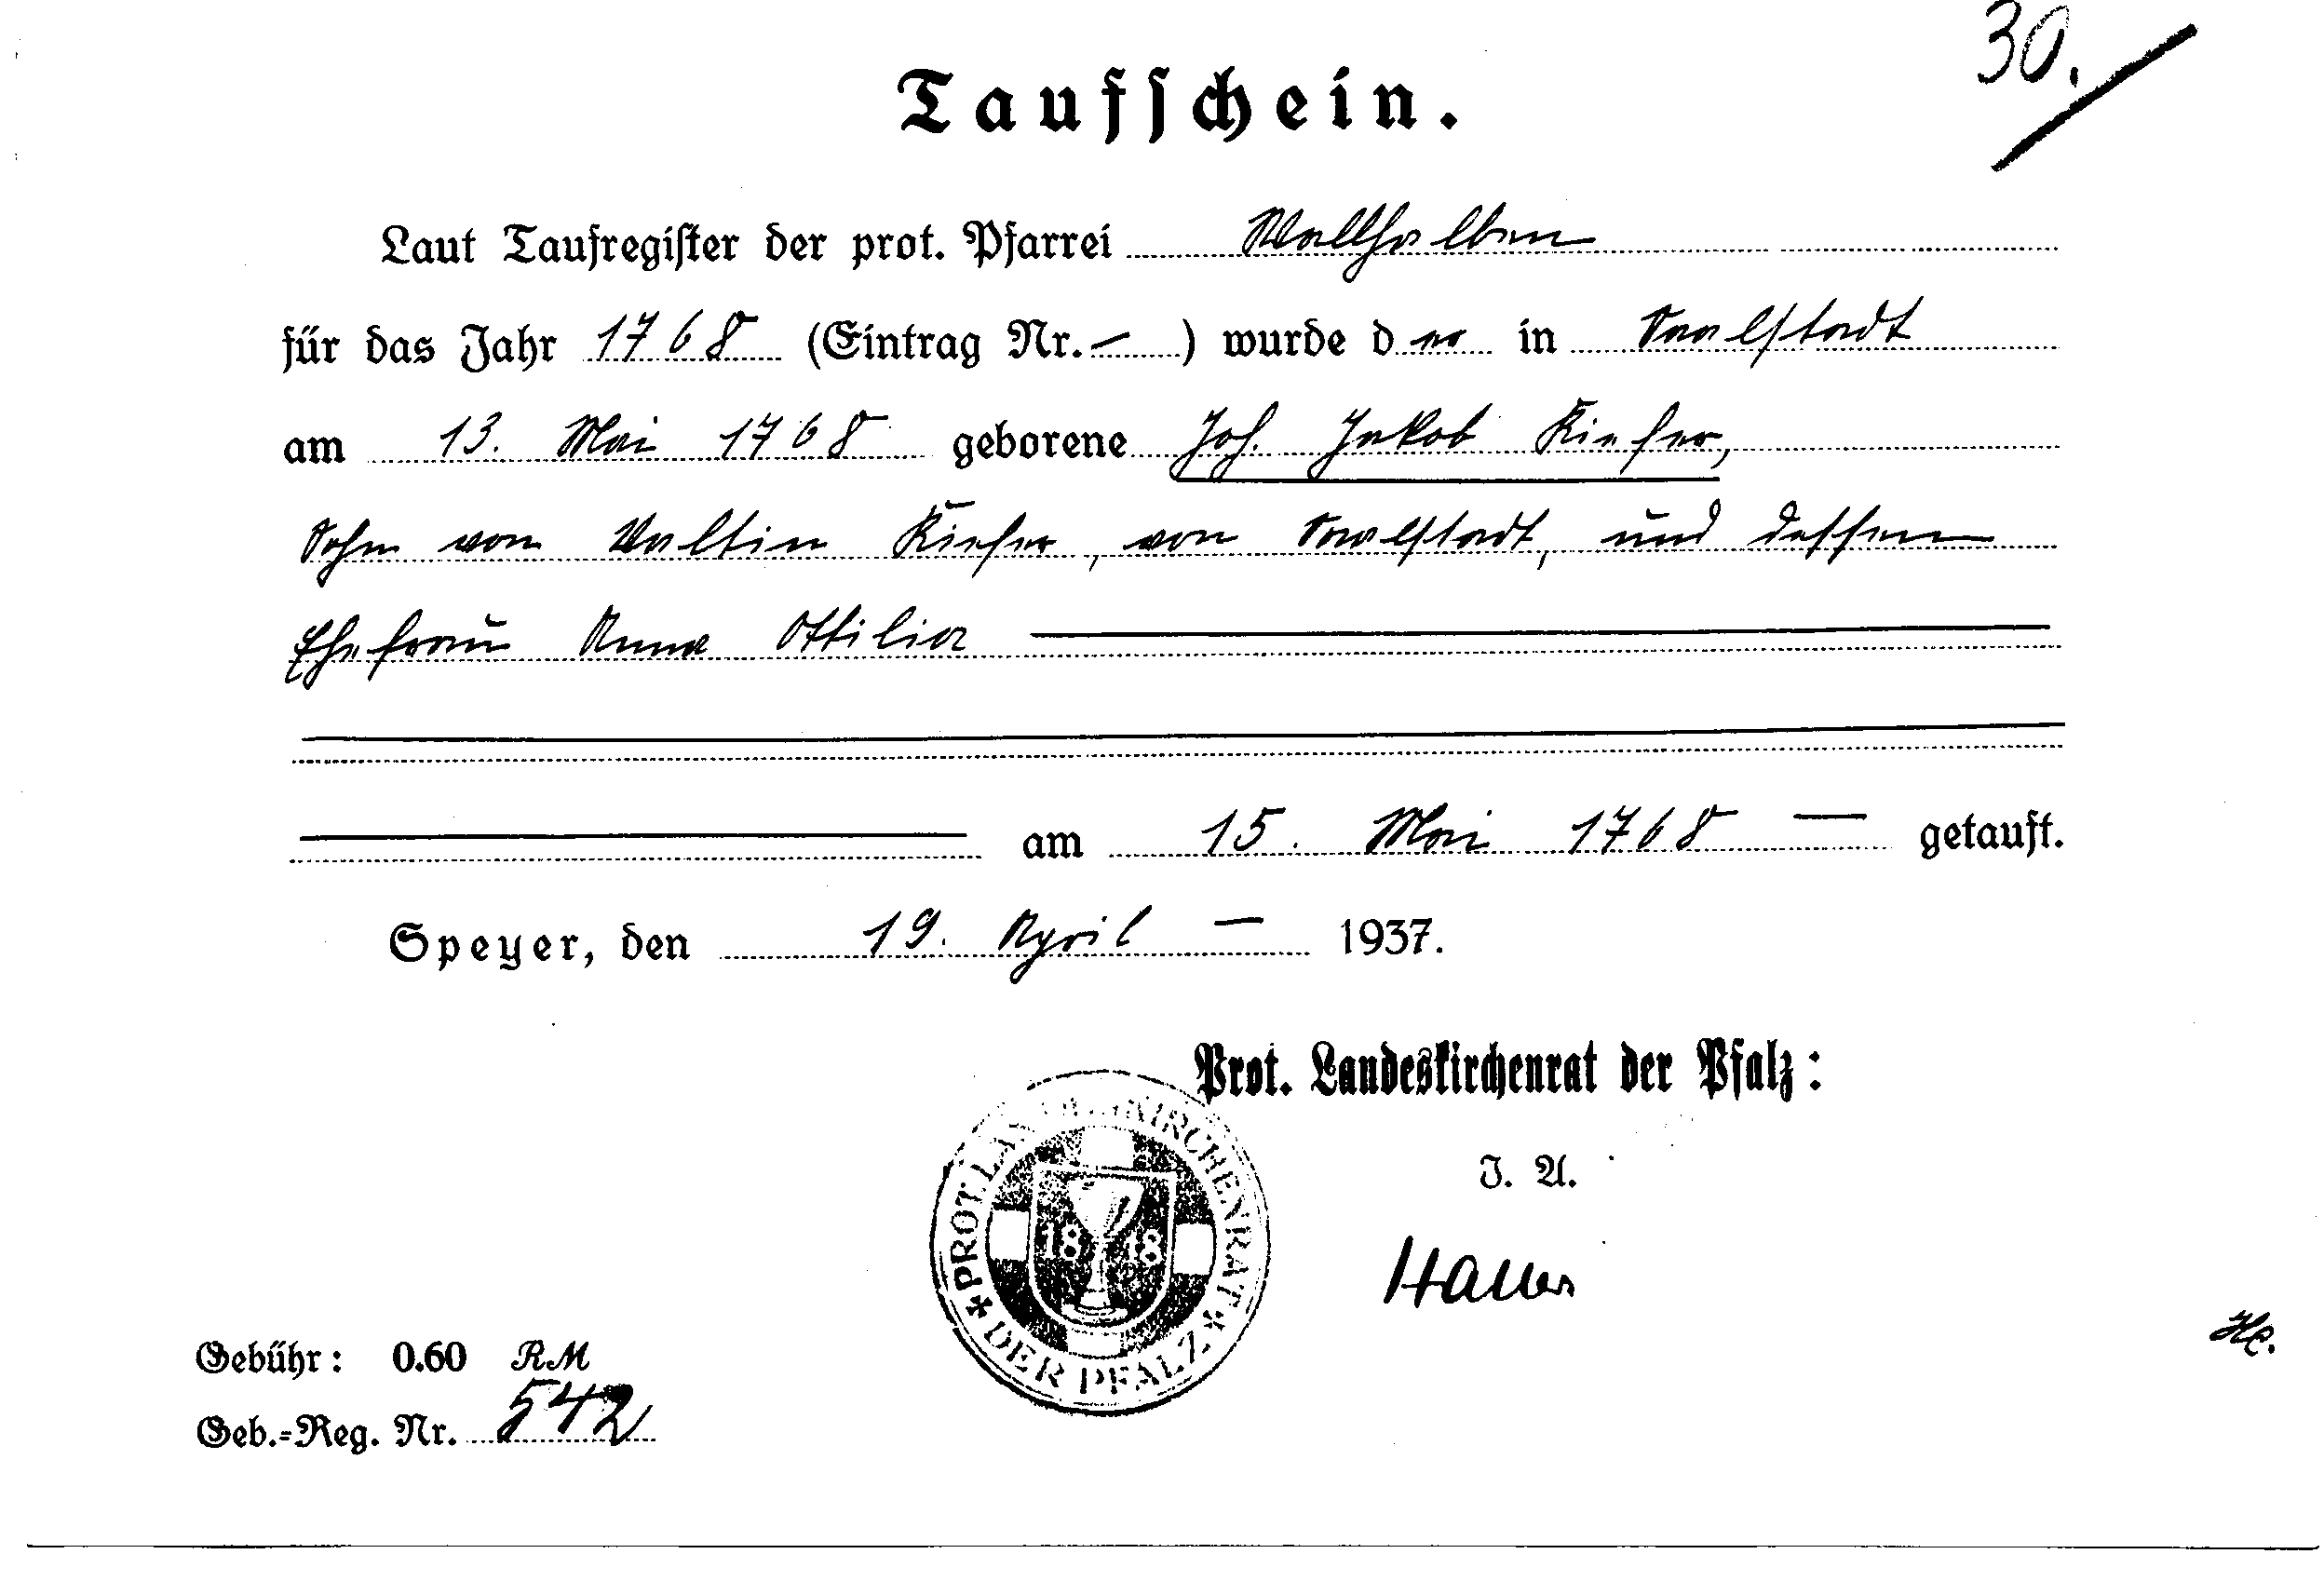 30.
Taufschein.
Laut Taufregister der prot. Pfarrei Wallhalben
für das Jahr 1768 (Eintrag Nr. — ) wurde der in Saalstadt
am 13. Mai 1768 geborene Joh. Jakob Kiefer,
Sohn von Valtin Kiefer, von Saalstadt, und dessen
Ehefrau Anna Ottilia
am 15. Mai 1768 — getauft.
Speyer, den 19. April — 1937.
Prot. Landeskirchenrat der Pfalz:
PROT. LANDESKIRCHENRAT
DER PFALZ
1818
J. A.
Gebühr: 0.60 RM
Geb.-Reg. Nr. 542